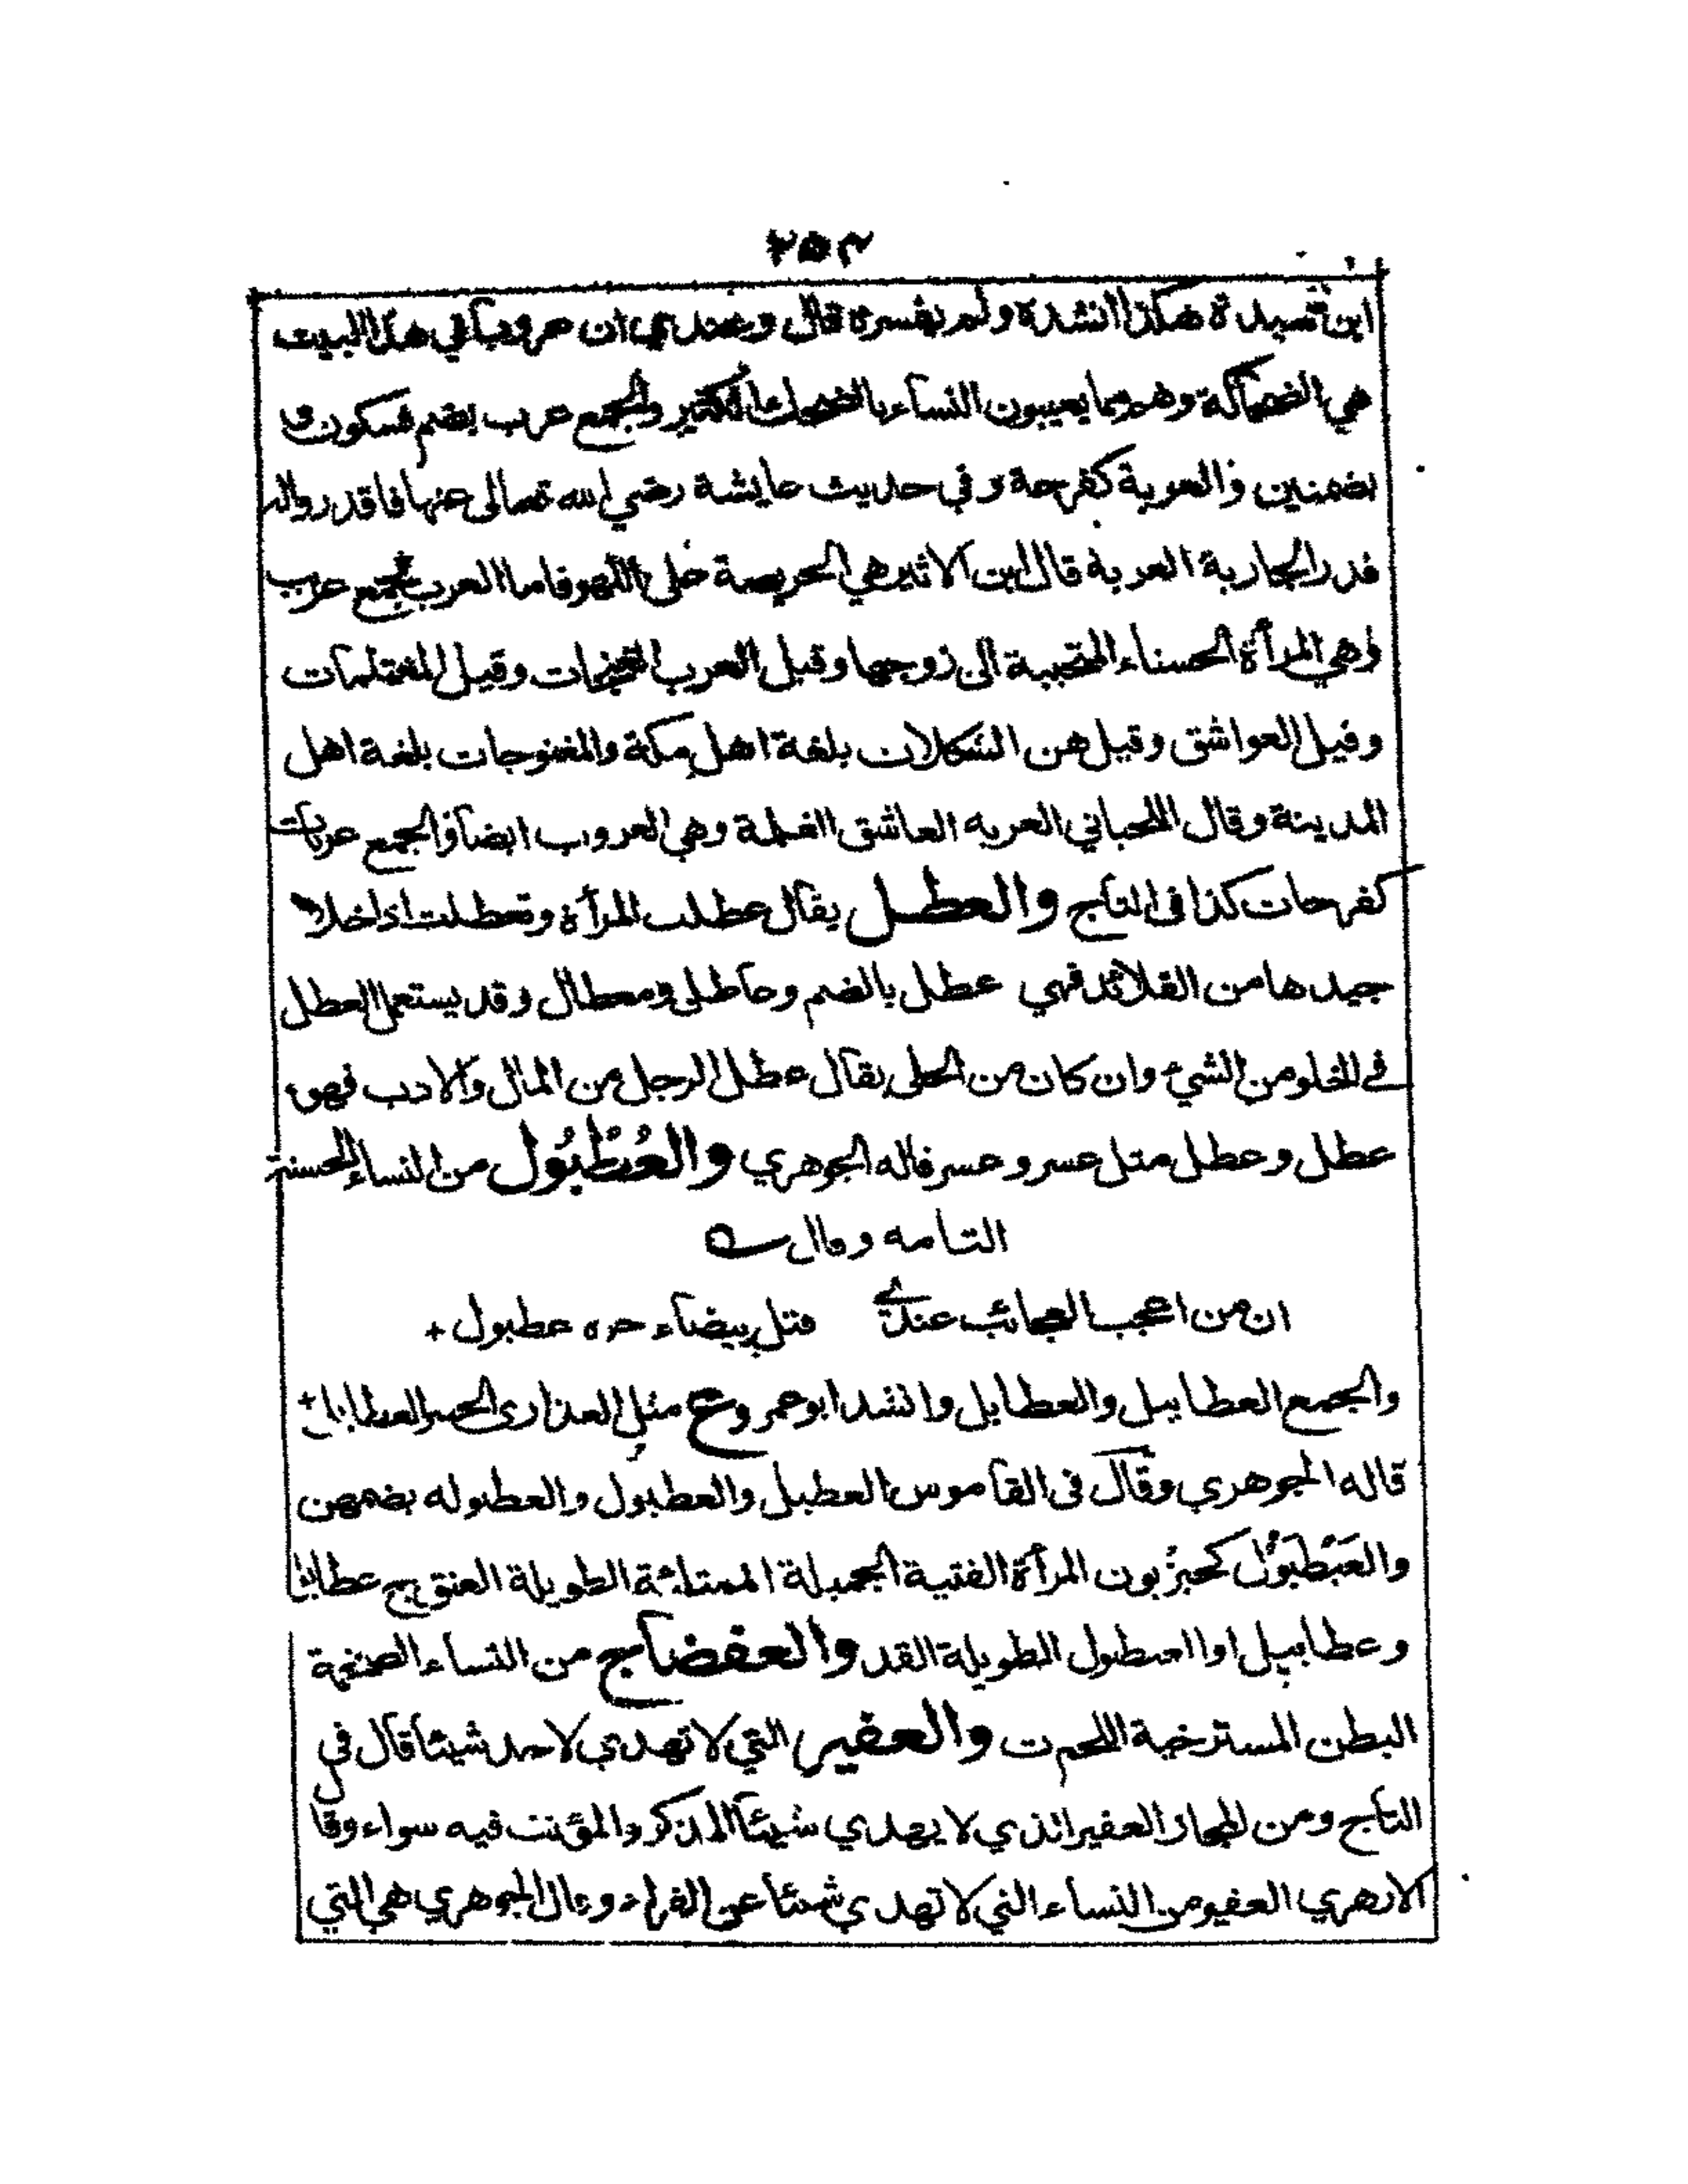 ٢٥٣
ابن سيدة هكذا انشدة ولم يفسرة قال وعندي ان عروبا في هذا البيت
هي الضحاكة وهم مما يعيبون النساء بالضحك الكثير والجمع عرب بضم فسكون و
بضمتين والعربة كفرحة وفي حديث عايشة رضي الله تعالى عنها فاقدروا له
قدر الجارية العربة قال ابن الاثير هي الحريصة على اللهو فاما العرب فجمع عروب
وهي المرأة الحسناء المتحببة الى زوجها وقيل العرب الغنجات وقيل المغتلمات
وقيل العواشق وقيل هن الشكلات بلغة اهل مكة والمغنوجات بلغة اهل
المدينة وقال اللحياني العربه العاشق الغلمة وهي العروب ايضا والجمع عربات
كفرحات كذا في التاج والعطل يقال عطلت المرأة وتعطلت اذا خلا
جيدها من القلائد فهي عطل بالضم وعاطل ومعطال وقد يستعمل العطل
في الخلو من الشيء وان كان من الحلى يقال عطل الرجل من المال والادب فهو
عطل وعطل مثل عسر وعسر قاله الجوهري والعُطْبُول من النساء الحسنة
التامه وقال
ان من اعجب العجائب عندي قتل بيضاء حره عطبول +
والجمع العطابيل والعطابل وانشد ابو عمرو ع مثل العذارى الحسر العطابل +
قاله الجوهري وقال في القاموس العطبل والعطبول والعطبوله بضمهن
والعَيْطَبُول كحيزبون المرأة الفتية الجميلة الممتلئة الطويلة العنق ج عطابل
وعطابيل او العطبول الطويلة القد والعفضاج من النساء الضخمة
البطن المسترخية اللحم ت والعفير التي لا تهدي لاحد شيئا قال في
التاج ومن المجاز العفير الذي لا يهدي شيئا المذكر والمؤنث فيه سواء وقا
الازهري العفير من النساء التي لا تهدي شيئا عن الفراء وقال الجوهري هي التي